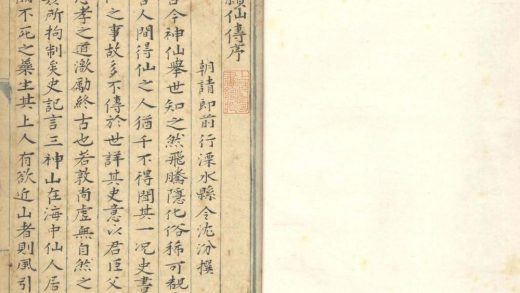 續仙傳序
朝請郎前行溧水縣令沈汾撰
古今神仙舉世知之然飛騰隱化俗稀可覩
言人間得仙之人猶千不得聞其一况史書
之事故多不傳於世詳其史意以君臣父
忠孝之道激勵終古也若敦尚虛無自然之
所拘制矣史記言三神山在海中仙人居
不死之藥生其上人有欲近山者則風引